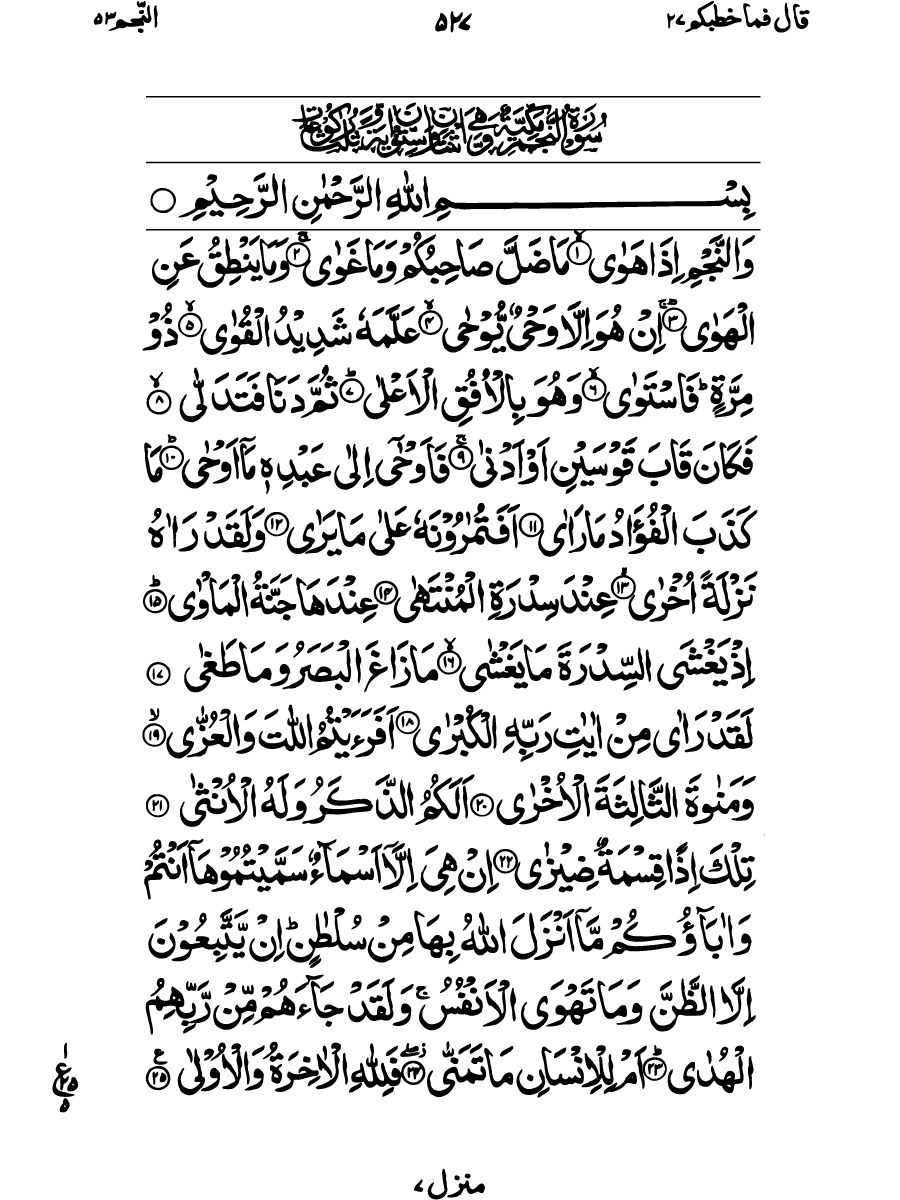 قال فما خطبكم ٢٧ ٥٢٧ النّجم ٥٣
سُوْرَةُ النَّجْمِ مَكِّيَّةٌ وَّهِىَ اثْنَتَانِ وَسِتُّوْنَ اٰيَةً وَّثَلٰثُ رُكُوْعَاتٍ
بِسْمِ اللّٰهِ الرَّحْمٰنِ الرَّحِيْمِ ○
وَالنَّجْمِ اِذَا هَوٰى ۙ﴿١﴾ مَا ضَلَّ صَاحِبُكُمْ وَمَا غَوٰى ۚ﴿٢﴾ وَمَا يَنْطِقُ عَنِ
الْهَوٰى ؕ﴿٣﴾ اِنْ هُوَ اِلَّا وَحْىٌ يُّوْحٰى ۙ﴿٤﴾ عَلَّمَهٗ شَدِيْدُ الْقُوٰى ۙ﴿٥﴾ ذُوْ
مِرَّةٍ ؕ فَاسْتَوٰى ۙ﴿٦﴾ وَهُوَ بِالْاُفُقِ الْاَعْلٰى ؕ﴿٧﴾ ثُمَّ دَنَا فَتَدَلّٰى ۙ﴿٨﴾
فَكَانَ قَابَ قَوْسَيْنِ اَوْ اَدْنٰى ۚ﴿٩﴾ فَاَوْحٰۤى اِلٰى عَبْدِهٖ مَاۤ اَوْحٰى ؕ﴿١٠﴾ مَا
كَذَبَ الْفُؤَادُ مَا رَاٰى ﴿١١﴾ اَفَتُمٰرُوْنَهٗ عَلٰى مَا يَرٰى ﴿١٢﴾ وَلَقَدْ رَاٰهُ
نَزْلَةً اُخْرٰى ۙ﴿١٣﴾ عِنْدَ سِدْرَةِ الْمُنْتَهٰى ﴿١٤﴾ عِنْدَهَا جَنَّةُ الْمَاْوٰى ؕ﴿١٥﴾
اِذْ يَغْشَى السِّدْرَةَ مَا يَغْشٰى ۙ﴿١٦﴾ مَا زَاغَ الْبَصَرُ وَمَا طَغٰى ﴿١٧﴾
لَقَدْ رَاٰى مِنْ اٰيٰتِ رَبِّهِ الْكُبْرٰى ﴿١٨﴾ اَفَرَءَيْتُمُ اللّٰتَ وَالْعُزّٰى ۙ﴿١٩﴾
وَمَنٰوةَ الثَّالِثَةَ الْاُخْرٰى ﴿٢٠﴾ اَلَكُمُ الذَّكَرُ وَلَهُ الْاُنْثٰى ﴿٢١﴾
تِلْكَ اِذًا قِسْمَةٌ ضِيْزٰى ﴿٢٢﴾ اِنْ هِىَ اِلَّاۤ اَسْمَآءٌ سَمَّيْتُمُوْهَاۤ اَنْتُمْ
وَاٰبَآؤُكُمْ مَّاۤ اَنْزَلَ اللّٰهُ بِهَا مِنْ سُلْطٰنٍ ؕ اِنْ يَّتَّبِعُوْنَ
اِلَّا الظَّنَّ وَمَا تَهْوَى الْاَنْفُسُ ۚ وَلَقَدْ جَآءَهُمْ مِّنْ رَّبِّهِمُ
الْهُدٰى ؕ﴿٢٣﴾ اَمْ لِلْاِنْسَانِ مَا تَمَنّٰى ۖ﴿٢٤﴾ فَلِلّٰهِ الْاٰخِرَةُ وَالْاُوْلٰى ﴿٢٥﴾
١ ع ٢٥ ٥
منزل ٧